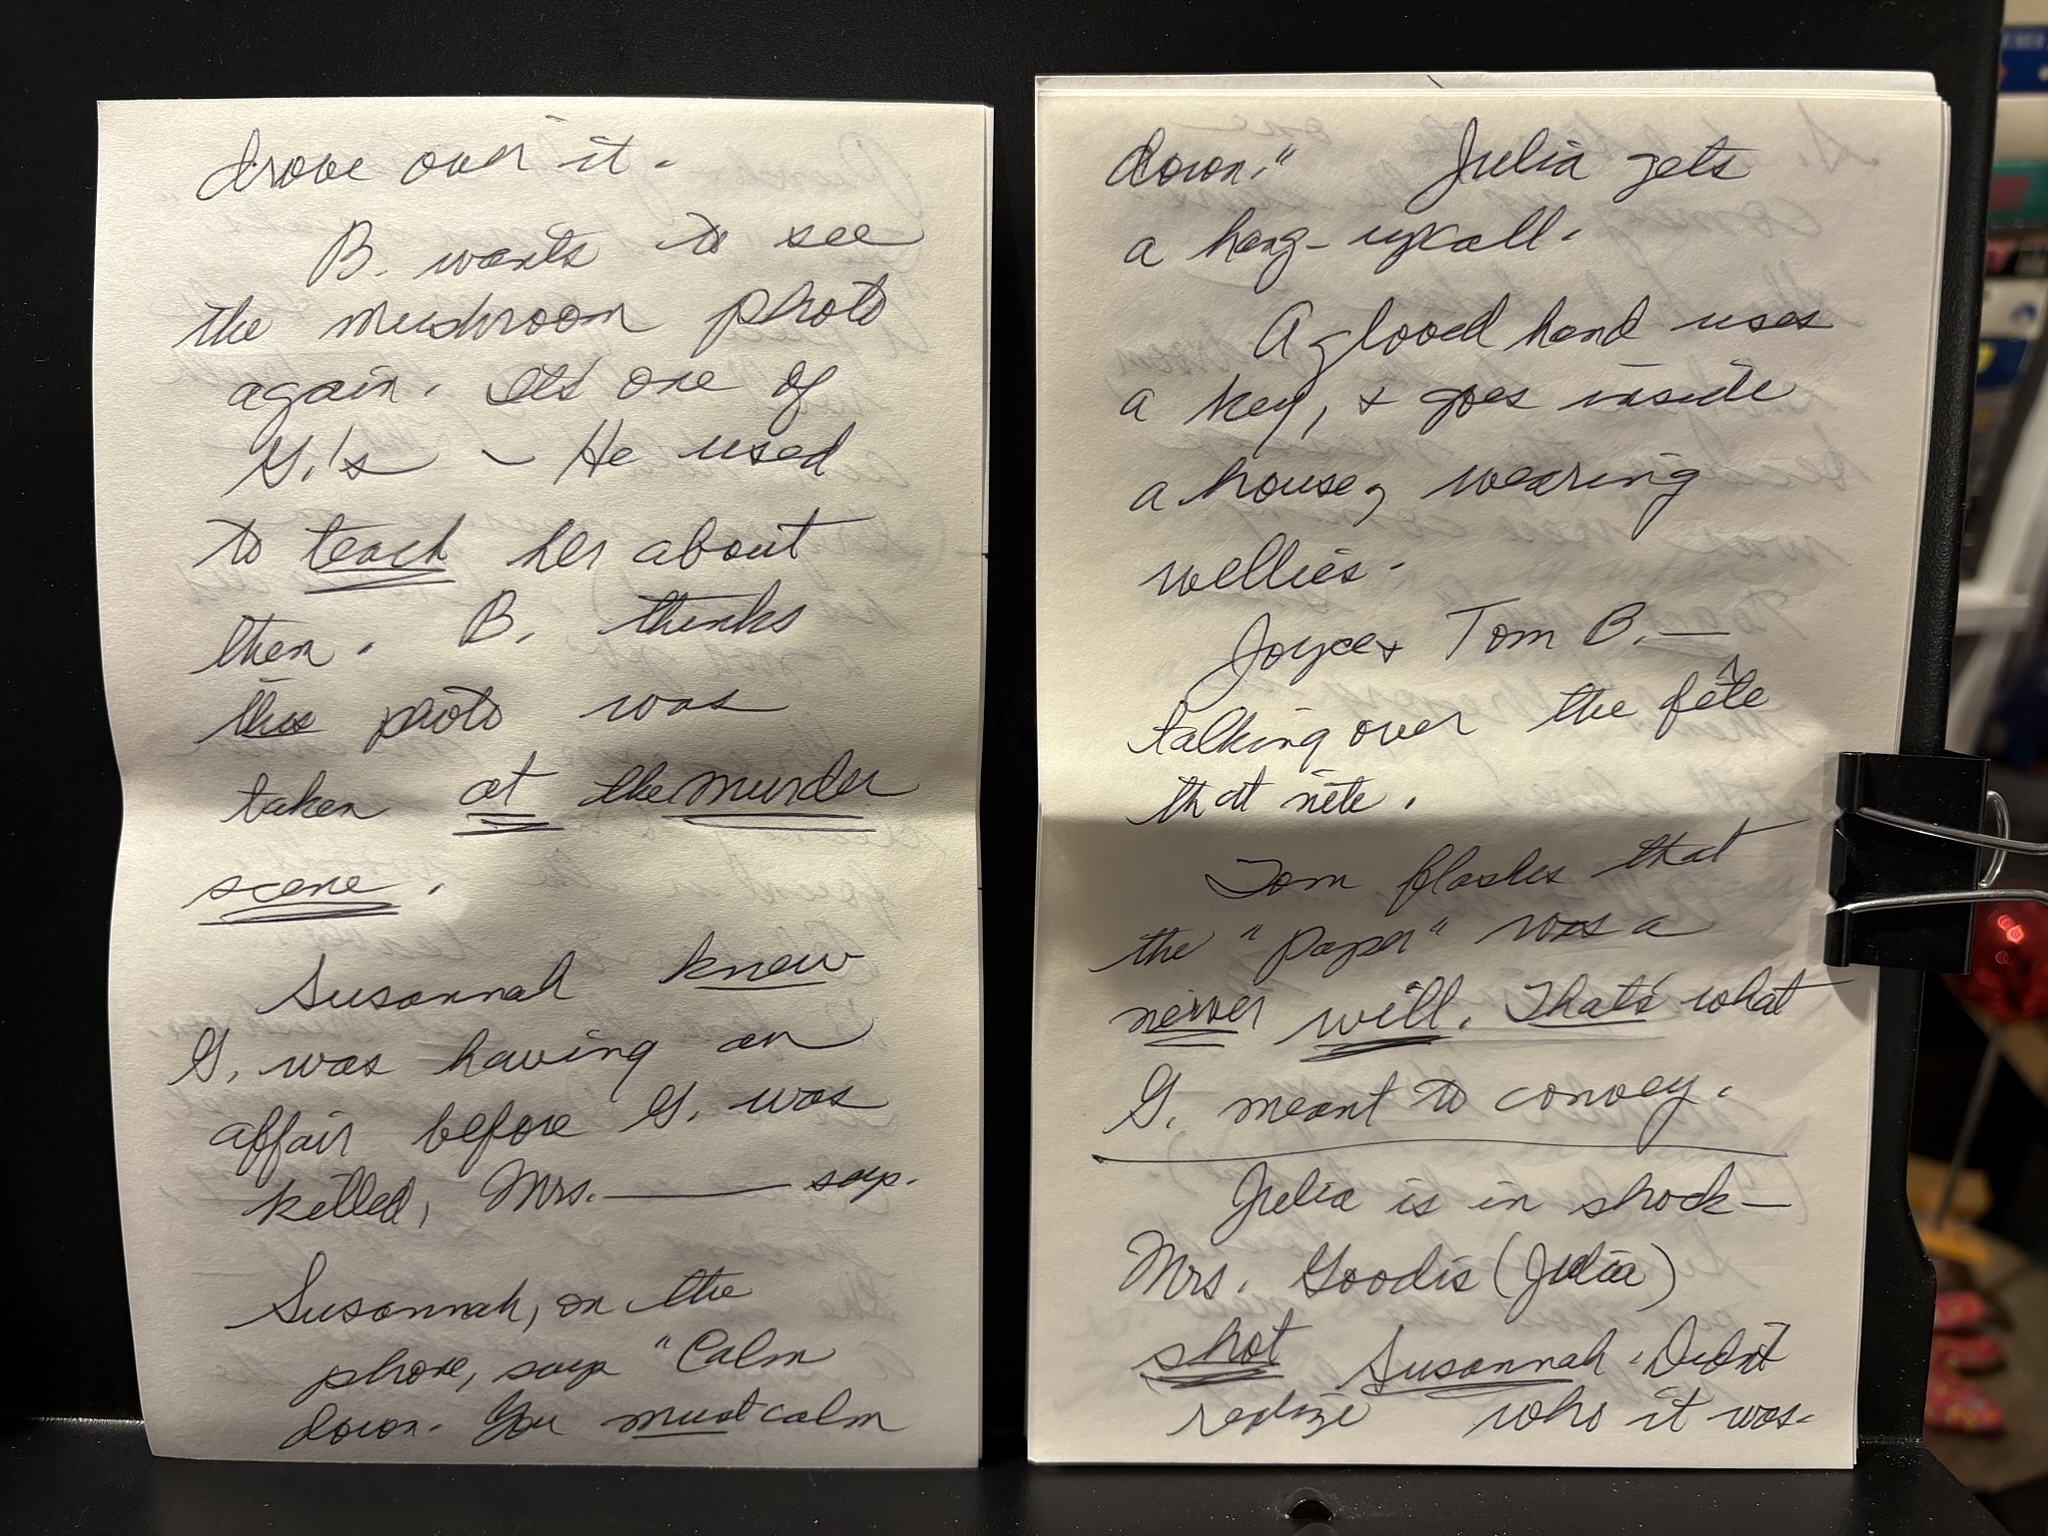 drove over it.
B. wants to see
the mushroom photo
again. It's one of
G.'s ~ He used
to teach her about
them. B. thinks
this photo was
taken at the murder
scene.
Susannah knew
G. was having an
affair before G. was
killed, Mrs. ——— says.
Susannah, on the
phone, says "Calm
down. You must calm
down." Julia gets
a hang-up call.
A gloved hand uses
a key, & goes inside
a house, wearing
wellies.
Joyce & Tom B. —
talking over the fête
that nite.
Tom flashes that
the "paper" was a
newer will. That's what
G. meant to convey.
Julia is in shock—
Mrs. Goodis (Julia)
shot Susannah. Didn't
realize who it was.